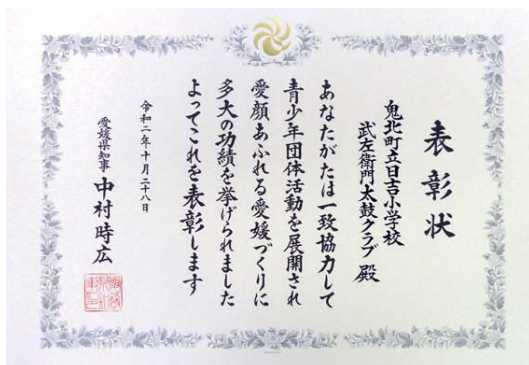 表彰状
鬼北町立日吉小学校
武左衛門太鼓クラブ 殿
あなたがたは一致協力して
青少年団体活動を展開され
愛顔あふれる愛媛づくりに
多大の功績を挙げられました
よってこれを表彰します
令和二年十月二十八日
愛媛県知事 中村時広